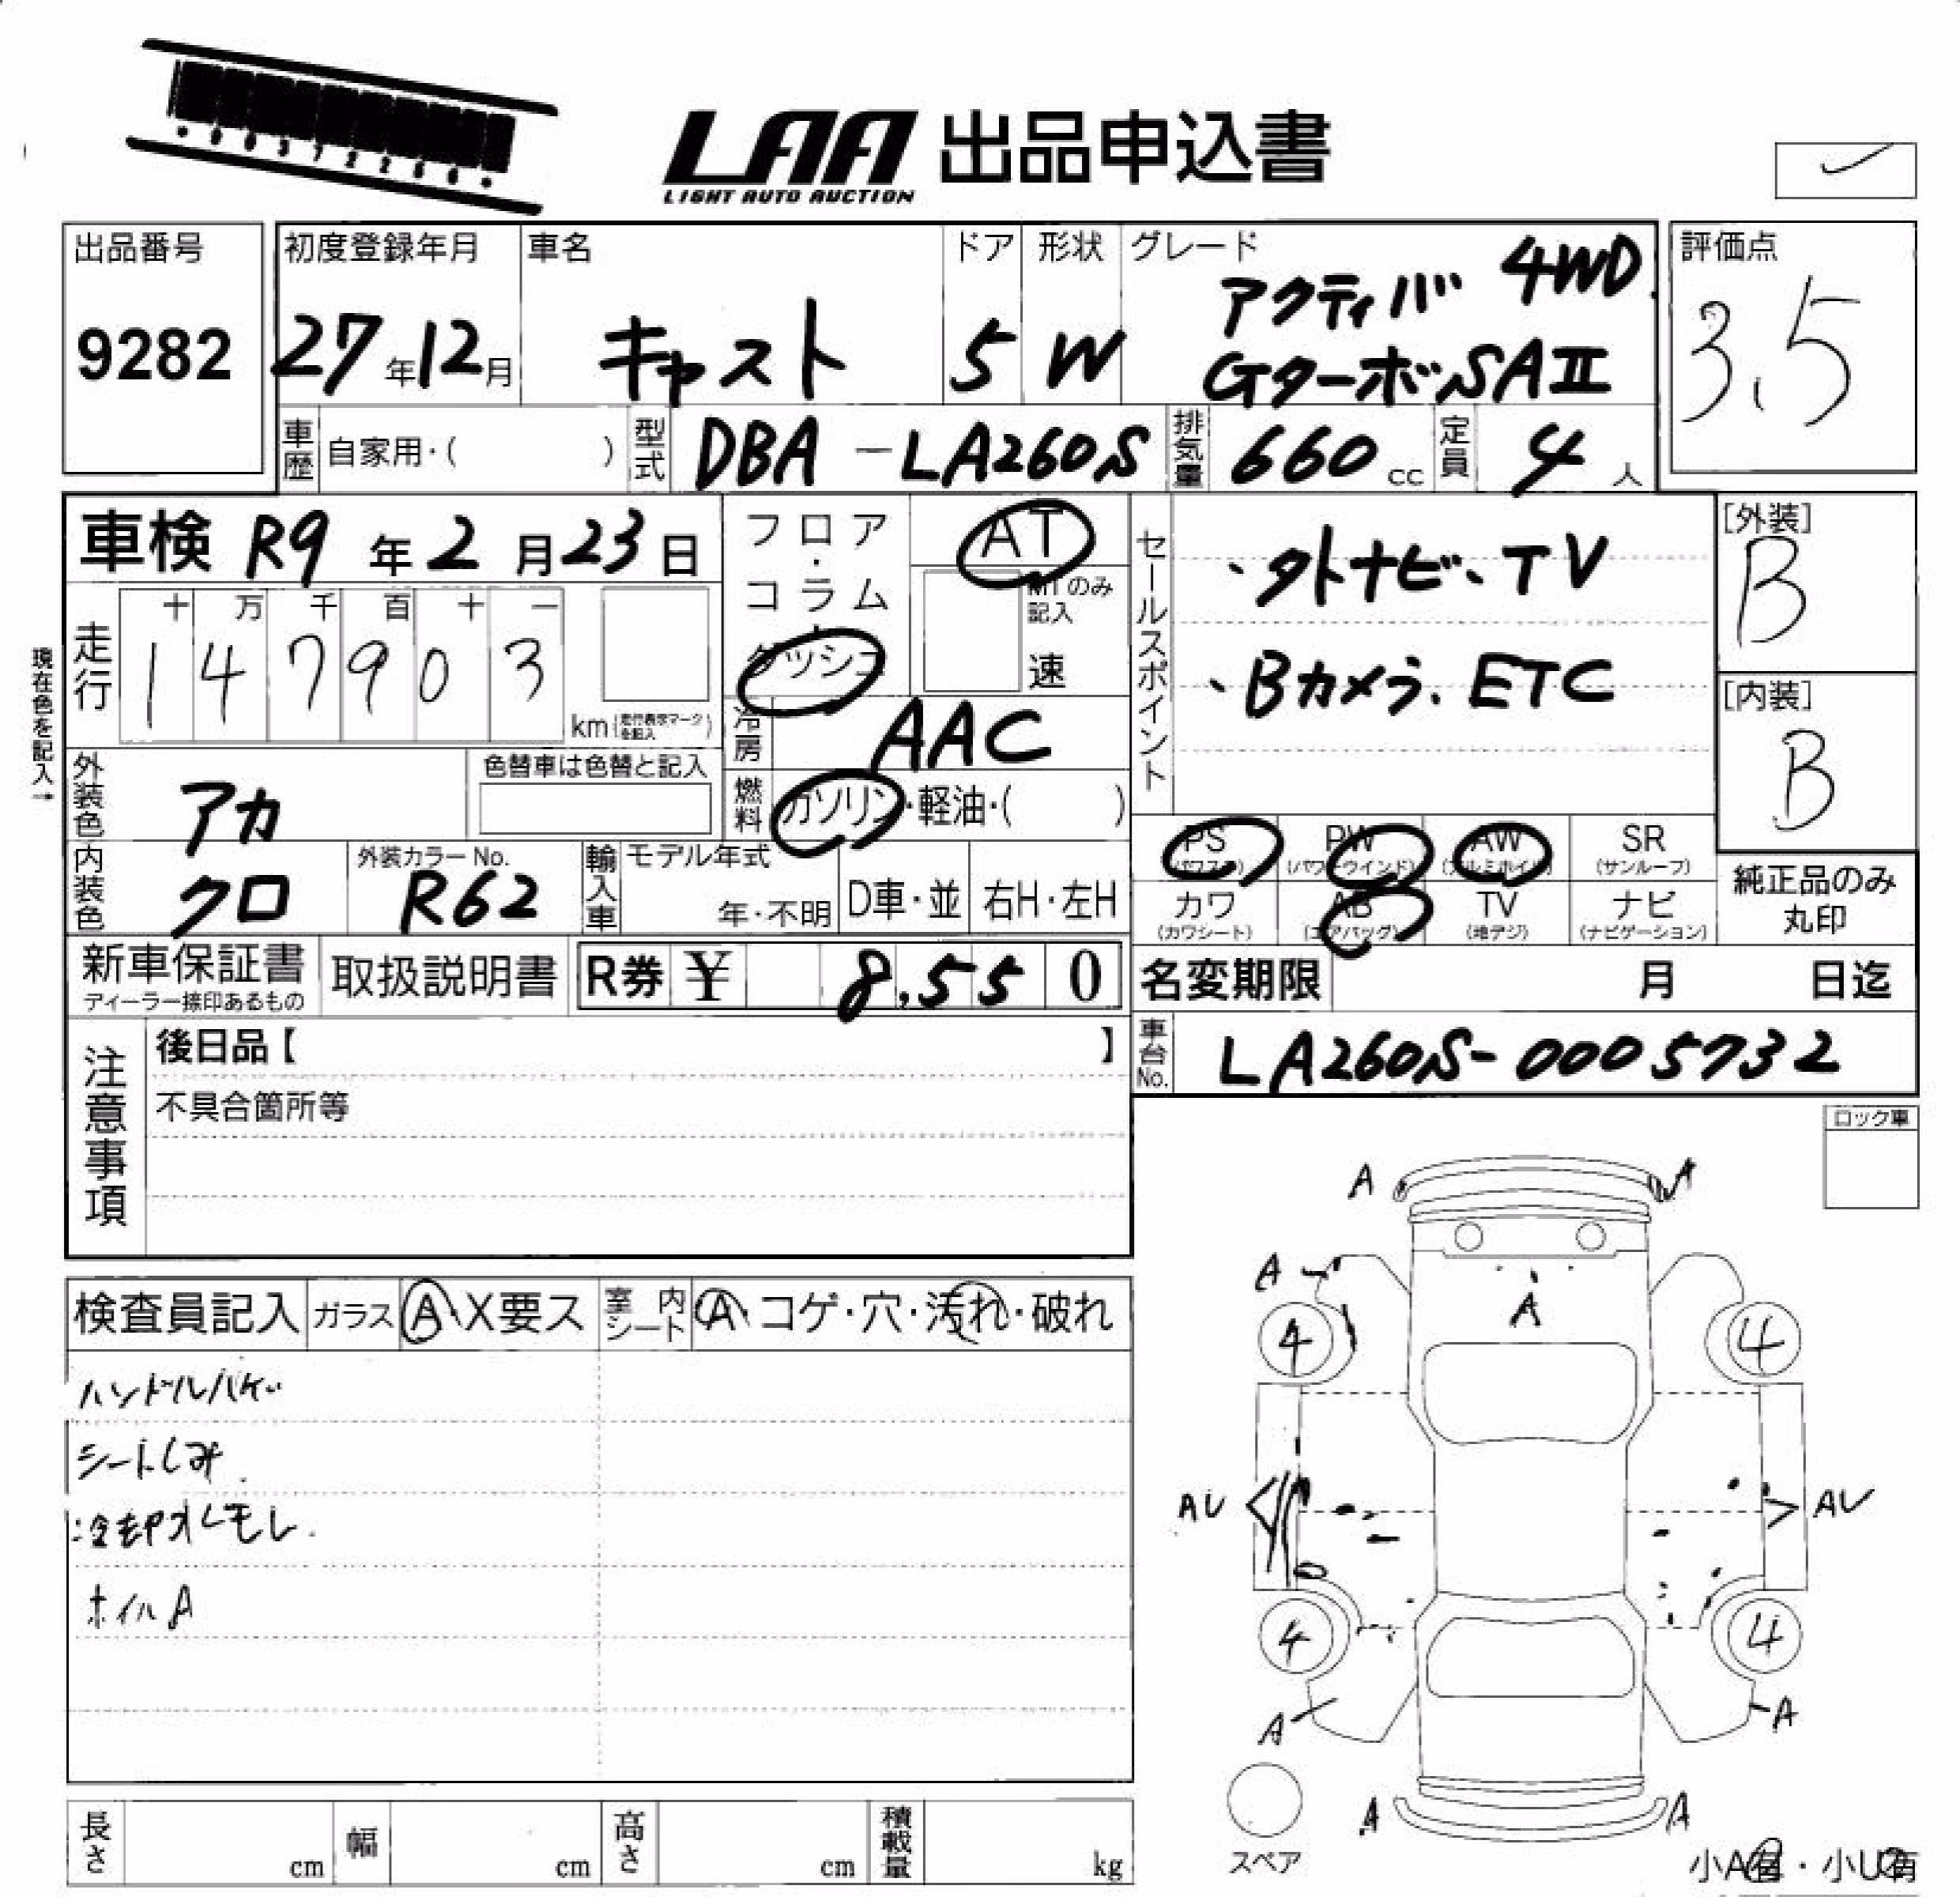 LAA 出品申込書
LIGHT AUTO AUCTION
出品番号
9282
初度登録年月
27年12月
車名
キャスト
ドア
5
形状
W
グレード
アクティバ 4WD
GターボSAⅡ
評価点
3.5
車歴 自家用・( )
型式 DBA-LA260S
排気量 660 cc
定員 4 人
車検 R9年2月23日
現在色を記入→
走行
十 万 千 百 十 一
1 4 7 9 0 3
km(走行表示マークを記入)
フロア・コラム・ダッシュ
AT
MTのみ記入
速
冷房 AAC
燃料 ガソリン・軽油・( )
セールスポイント
、外ナビ、TV
、Bカメラ、ETC
[外装]
B
[内装]
B
外装色 アカ
色替車は色替と記入
内装色 クロ
外装カラーNo.
R62
輸入車
モデル年式
年・不明
D車・並
右H・左H
PS (パワステ)
PW (パワーウインド)
AW (アルミホイル)
SR (サンルーフ)
カワ (カワシート)
AB (エアバッグ)
TV (地デジ)
ナビ (ナビゲーション)
純正品のみ
丸印
新車保証書
ディーラー捺印あるもの
取扱説明書
R券 ¥ 8,550
名変期限 月 日迄
車台No. LA260S-0005732
注意事項
後日品【 】
不具合箇所等
ロック車
検査員記入
ガラス A、X要ス
室内シート A、コゲ・穴・汚れ・破れ
ハンドルハゲ
シートしみ
冷却水モレ
ホイルA
A A
A
A
4 4
AU AU
4 4
A A
A A
スペア
長さ cm
幅 cm
高さ cm
積載量 kg
小A有・小U有